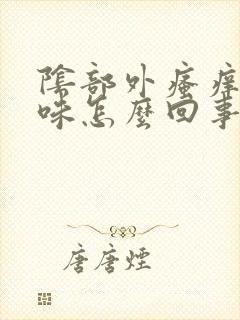 陰部外瘙癢
味怎麼回事
唐唐煙